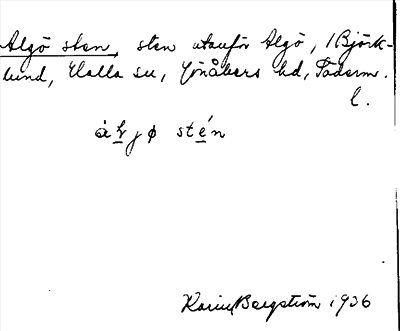 Algö sten, sten utanför Algö, 1 Björk-
lund, Halla sn, Jönåkers hd, Söderm.
l.
àḷjø stén
Karin Bergström 1936